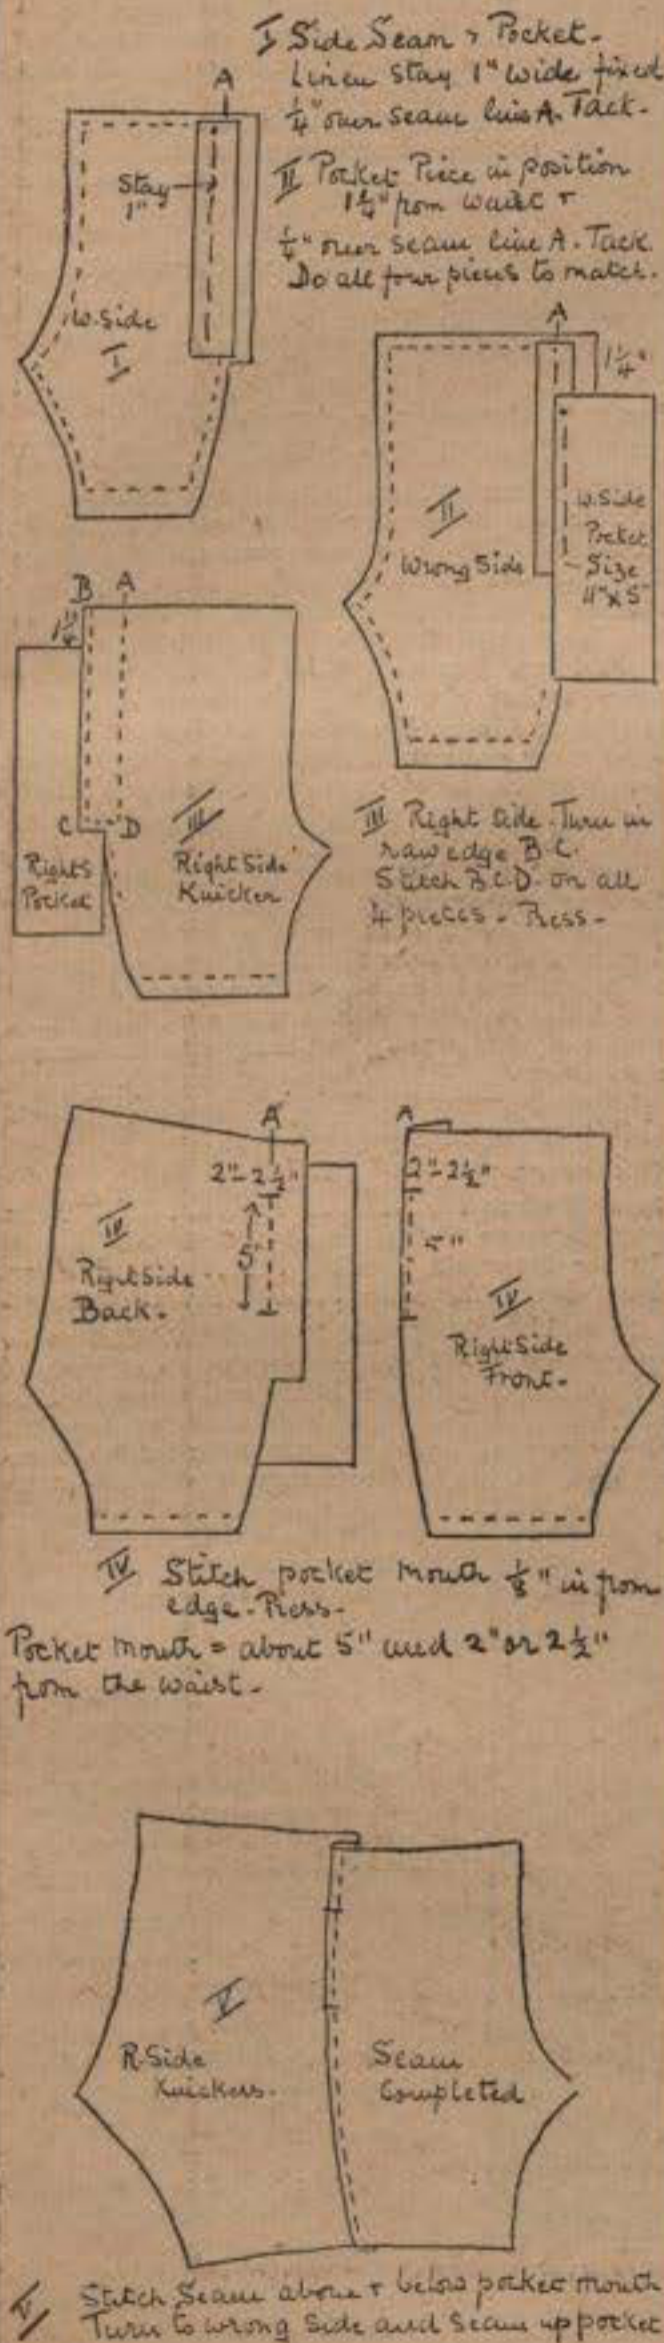 I Side Seam & Pocket.
Linen Stay 1" wide fixed
1/4" over seam line A. Tack.
A
Stay
1"
W. Side
I
II Pocket Piece in position
1 1/4" from waist &
1/4" over seam line A. Tack.
Do all four pieces to match.
A
1 1/4"
II
Wrong Side
W. Side
Pocket
Size
11" x 5"
B A
1 1/4"
C D
III
Right S
Pocket
Right Side
Knicker
III Right Side. Turn in
raw edge B.C.
Stitch B.C.D. on all
4 pieces. Press.
A
2"-2 1/2"
5"
IV
Right Side
Back.
A
2"-2 1/2"
5"
IV
Right Side
Front.
IV Stitch pocket mouth 1/8" in from
edge. Press.
Pocket Mouth = about 5" and 2" or 2 1/2"
from the waist.
V
R. Side
Knickers.
Seam
Completed
V Stitch Seam above & below pocket mouth
Turn to wrong side and seam up pocket